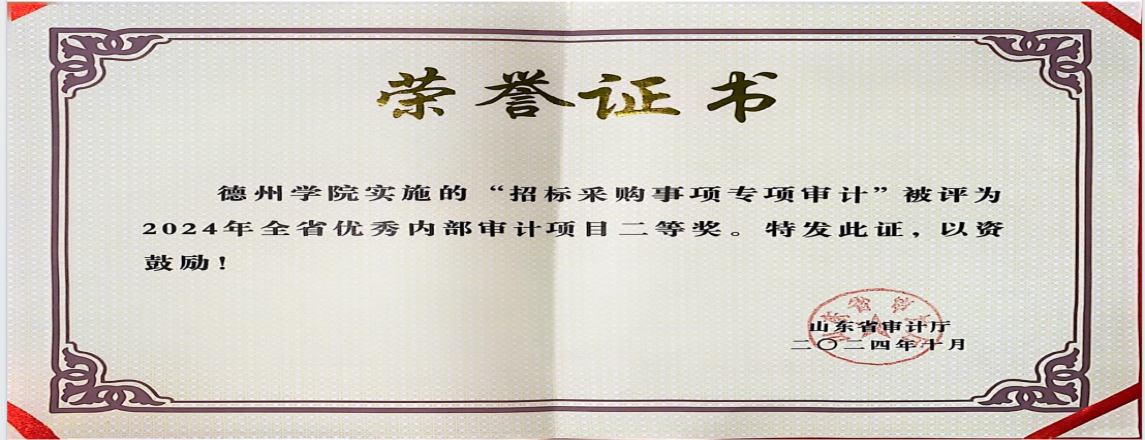 荣誉证书
德州学院实施的“招标采购事项专项审计”被评为
2024年全省优秀内部审计项目二等奖。特发此证，以资
鼓励！
山东省审计厅
二〇二四年十月